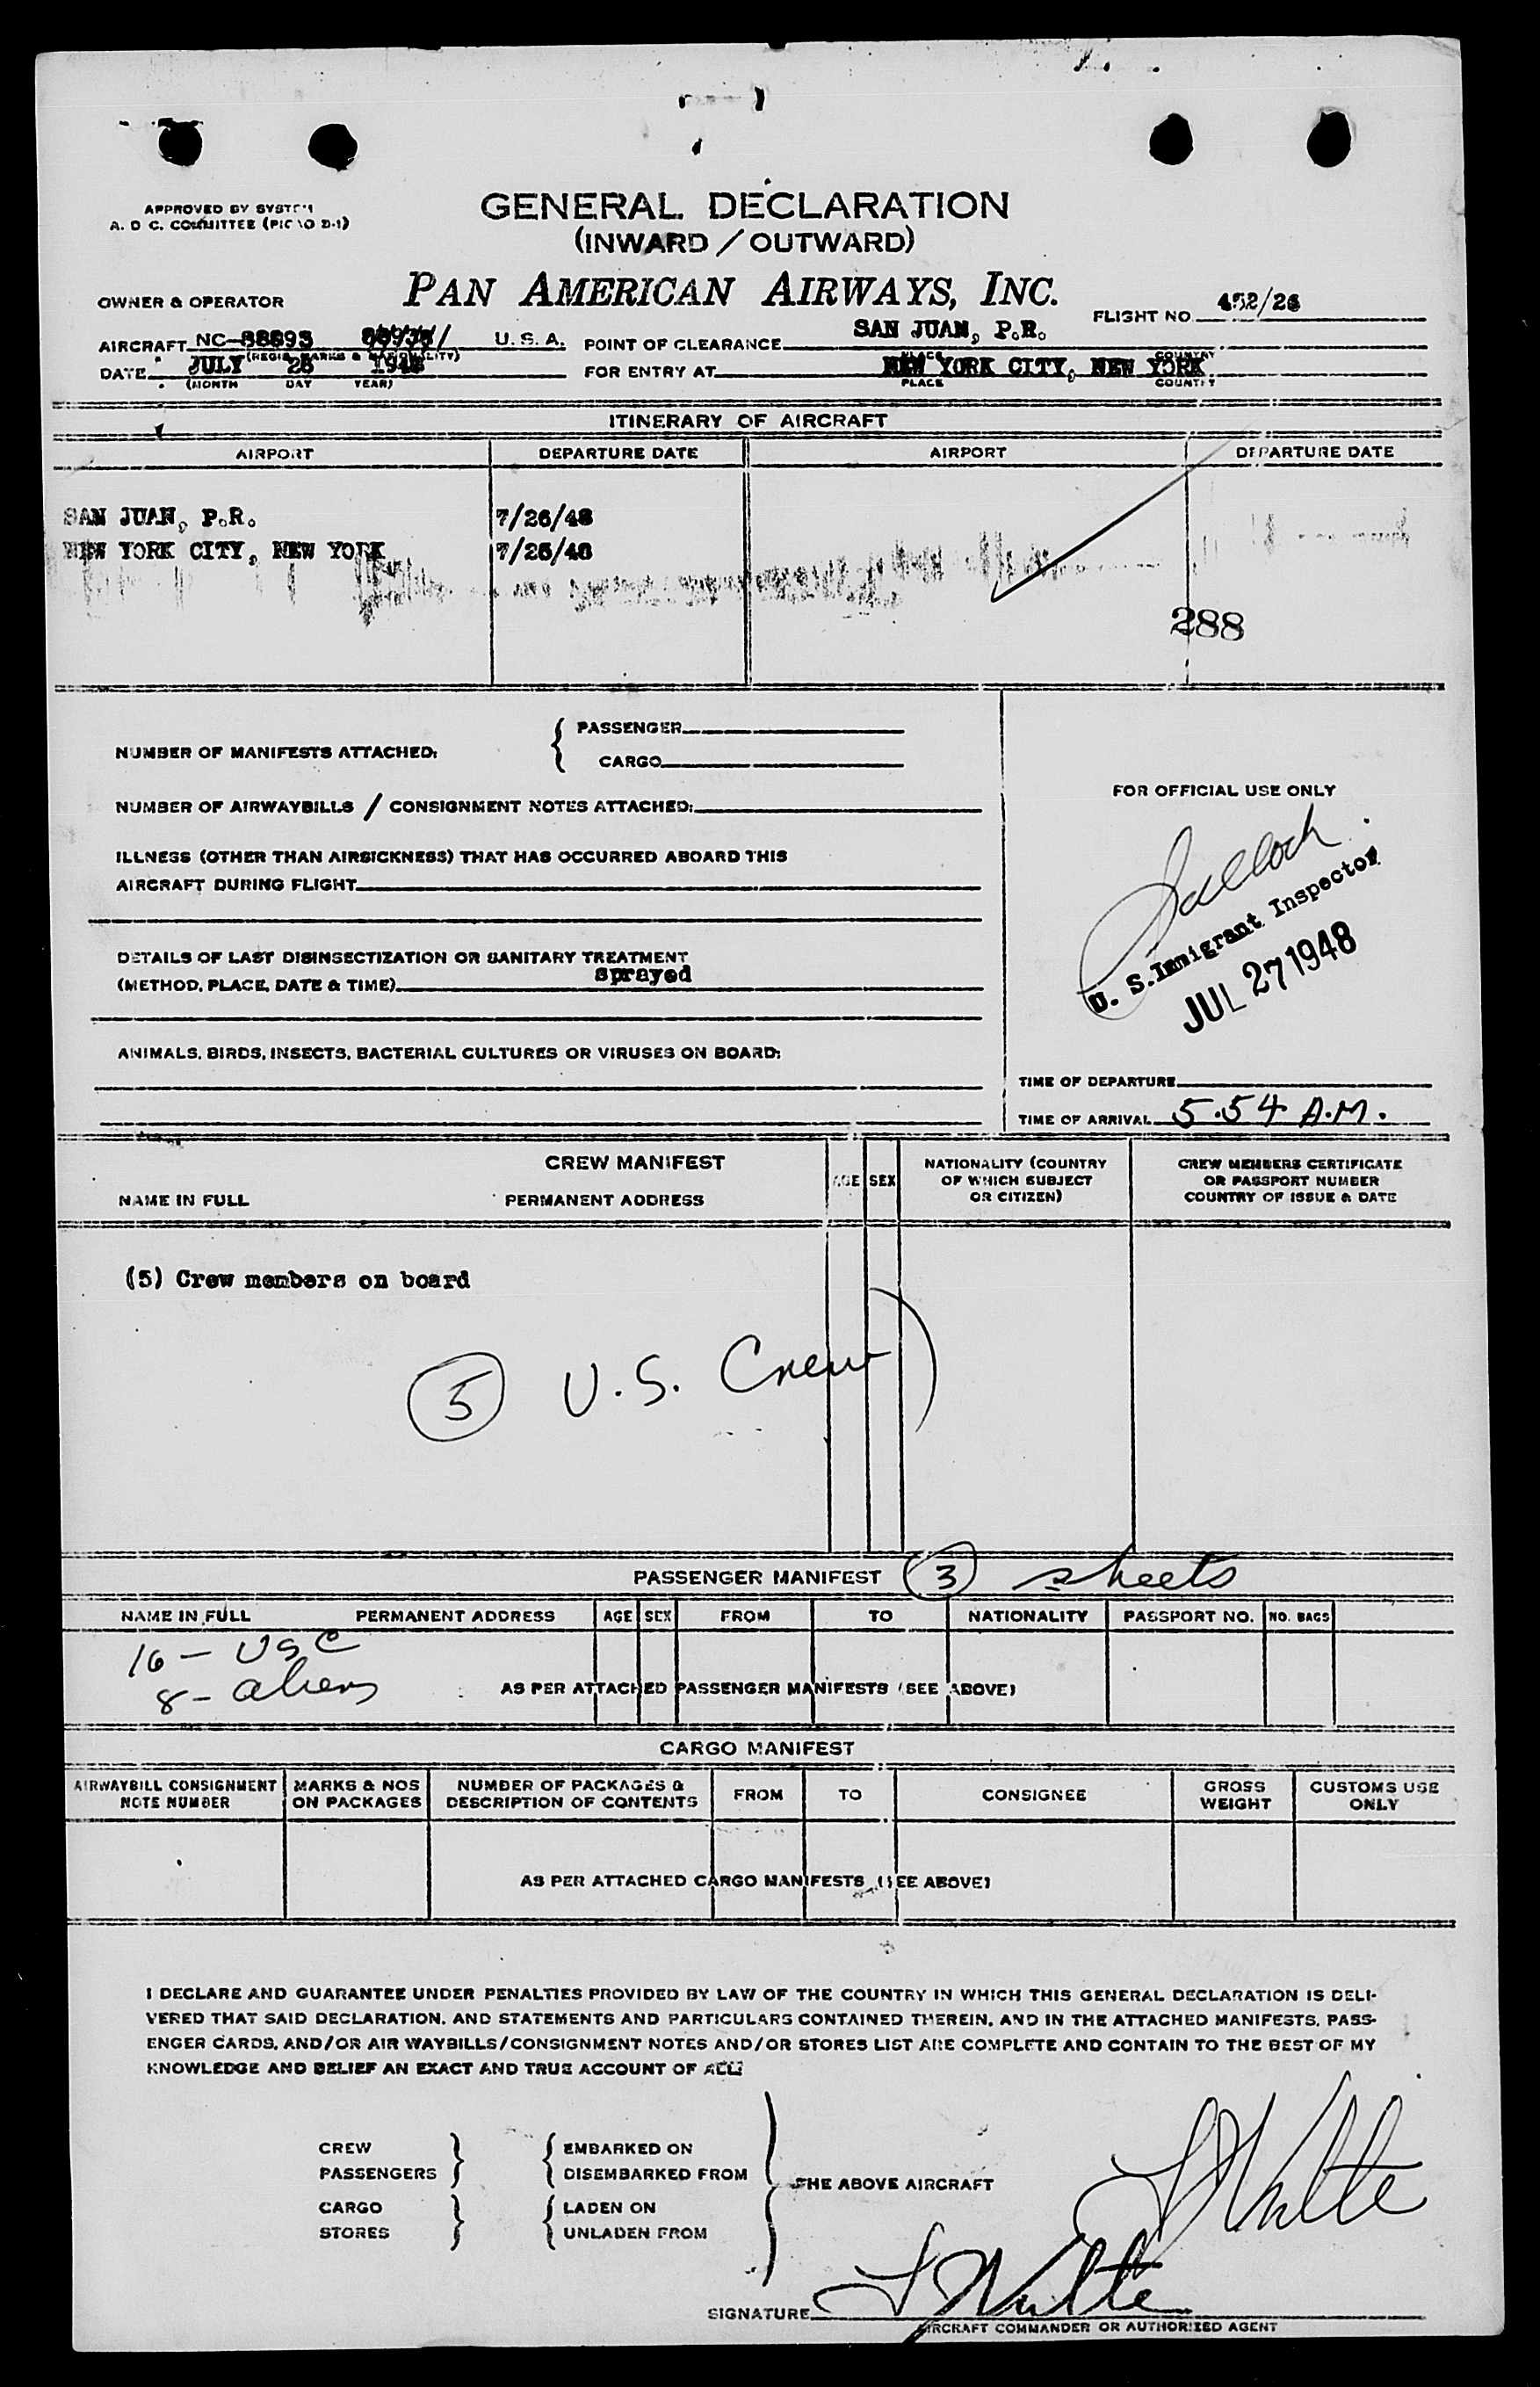 APPROVED BY SYSTEM
A. D C. COMMITTEE (PICAO D-1)
GENERAL DECLARATION
(INWARD / OUTWARD)
PAN AMERICAN AIRWAYS, INC.
OWNER & OPERATOR
FLIGHT NO. 452/26
AIRCRAFT NC-88893 U. S. A. POINT OF CLEARANCE SAN JUAN, P.R.
(REGIS. MARKS & NATIONALITY) PLACE COUNTRY
DATE JULY 26 1948 FOR ENTRY AT NEW YORK CITY, NEW YORK
(MONTH DAY YEAR) PLACE COUNTRY
ITINERARY OF AIRCRAFT
AIRPORT DEPARTURE DATE AIRPORT DEPARTURE DATE
SAN JUAN, P.R. 7/26/48
NEW YORK CITY, NEW YORK 7/26/48
288
NUMBER OF MANIFESTS ATTACHED: { PASSENGER
CARGO
NUMBER OF AIRWAYBILLS / CONSIGNMENT NOTES ATTACHED:
FOR OFFICIAL USE ONLY
ILLNESS (OTHER THAN AIRSICKNESS) THAT HAS OCCURRED ABOARD THIS
AIRCRAFT DURING FLIGHT
U. S. Immigrant Inspector
JUL 27 1948
DETAILS OF LAST DISINSECTIZATION OR SANITARY TREATMENT
(METHOD, PLACE, DATE & TIME) sprayed
ANIMALS, BIRDS, INSECTS, BACTERIAL CULTURES OR VIRUSES ON BOARD:
TIME OF DEPARTURE
TIME OF ARRIVAL 5.54 A.M.
CREW MANIFEST
NAME IN FULL PERMANENT ADDRESS AGE SEX NATIONALITY (COUNTRY OF WHICH SUBJECT OR CITIZEN) CREW MEMBERS CERTIFICATE OR PASSPORT NUMBER COUNTRY OF ISSUE & DATE
(5) Crew members on board
5 U.S. Crew)
PASSENGER MANIFEST 3 sheets
NAME IN FULL PERMANENT ADDRESS AGE SEX FROM TO NATIONALITY PASSPORT NO. NO. BAGS
16 - USC
8 - aliens
AS PER ATTACHED PASSENGER MANIFESTS (SEE ABOVE)
CARGO MANIFEST
AIRWAYBILL CONSIGNMENT NOTE NUMBER MARKS & NOS ON PACKAGES NUMBER OF PACKAGES & DESCRIPTION OF CONTENTS FROM TO CONSIGNEE GROSS WEIGHT CUSTOMS USE ONLY
AS PER ATTACHED CARGO MANIFESTS (SEE ABOVE)
I DECLARE AND GUARANTEE UNDER PENALTIES PROVIDED BY LAW OF THE COUNTRY IN WHICH THIS GENERAL DECLARATION IS DELI-
VERED THAT SAID DECLARATION, AND STATEMENTS AND PARTICULARS CONTAINED THEREIN, AND IN THE ATTACHED MANIFESTS, PASS-
ENGER CARDS, AND/OR AIR WAYBILLS/CONSIGNMENT NOTES AND/OR STORES LIST ARE COMPLETE AND CONTAIN TO THE BEST OF MY
KNOWLEDGE AND BELIEF AN EXACT AND TRUE ACCOUNT OF ALL:
CREW } { EMBARKED ON
PASSENGERS } { DISEMBARKED FROM
THE ABOVE AIRCRAFT
CARGO } { LADEN ON
STORES } { UNLADEN FROM
SIGNATURE
AIRCRAFT COMMANDER OR AUTHORIZED AGENT